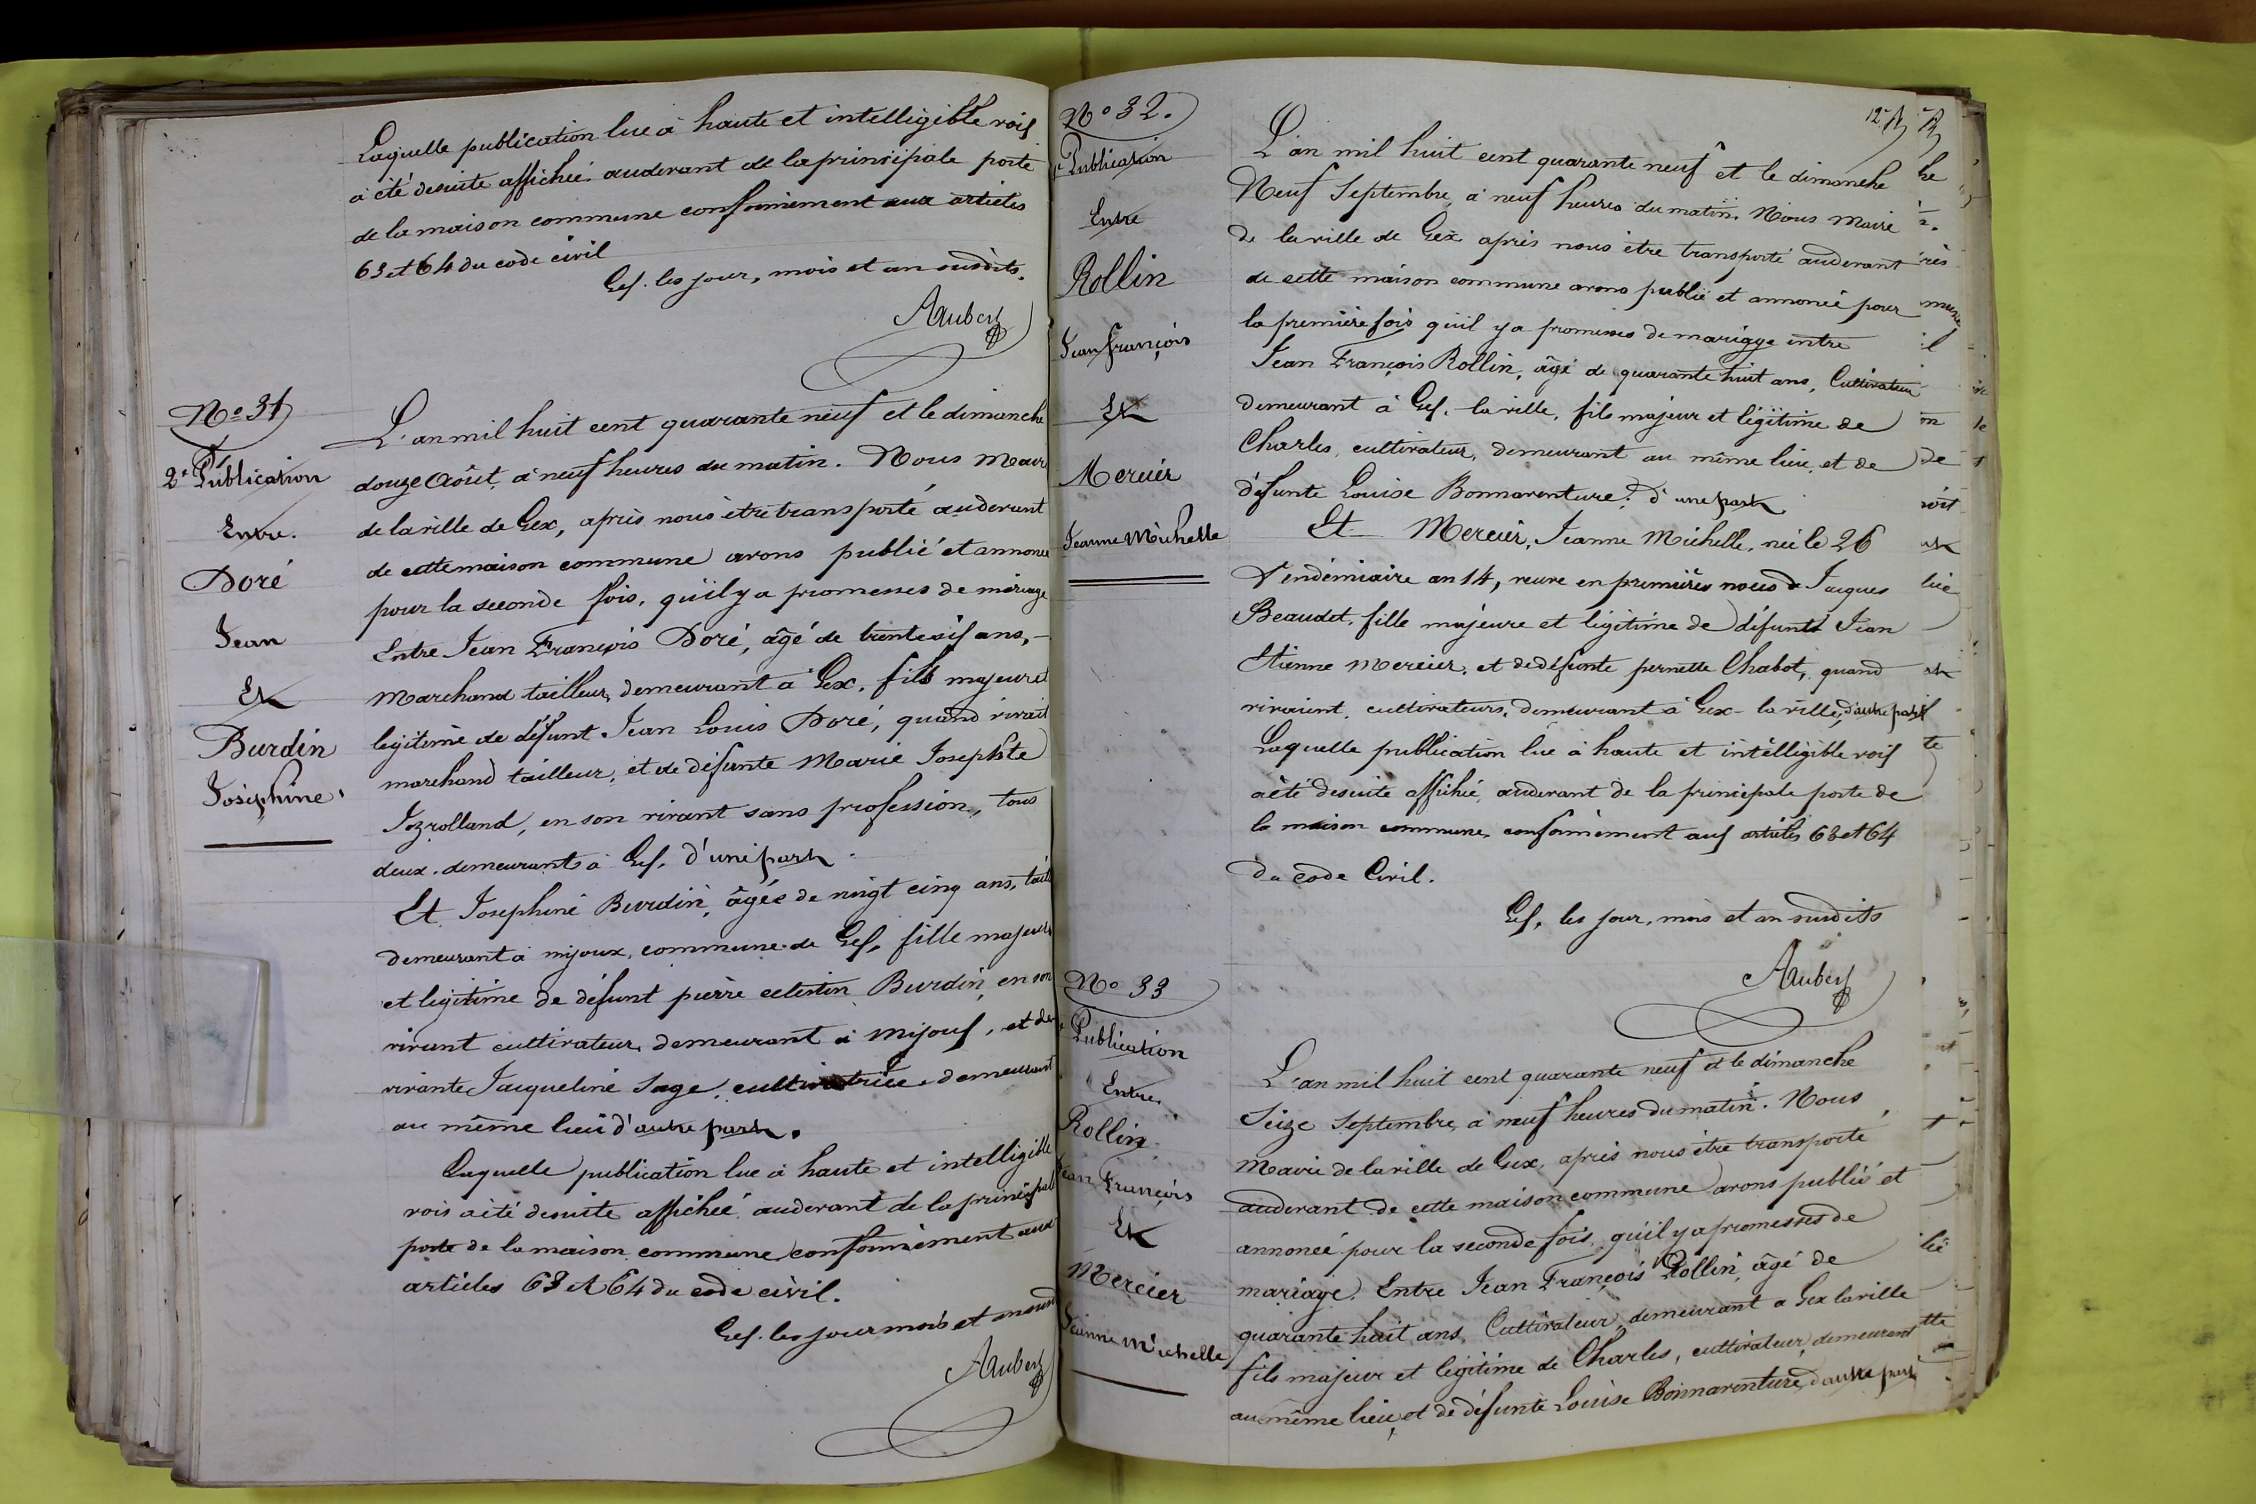 Laquelle publication lue à haute et intelligible voix
a été desuite affichée audevant de la principale porte
de la maison commune conformément aux articles
63 et 64 du code civil
Gex. les jour, mois et an susdits.
Aubery
No 31
2e Publication
Entre.
Doré
Jean
Et
Burdin
Joséphine
L'an mil huit cent quarante neuf et le dimanche
douze Août, à neuf heures du matin. Nous Maire
de la ville de Gex, après nous être transporté audevant
de cette maison commune avons publié et annoncé
pour la seconde fois, qu'il y a promesses de mariage
Entre Jean François Doré, âgé de trente six ans,
Marchand tailleur, demeurant à Gex, fils majeur et
légitime de défunt Jean Louis Doré, quand vivait
marchand tailleur, et de défunte Marie Josephte
Jozrolland, en son vivant sans profession, tous
deux demeurants à Gex, d'une part.
Et Josephine Burdin, âgée de vingt cinq ans,
demeurant à mijoux, commune de Gex, fille majeure
et légitime de défunt pierre celestin Burdin, en son
vivant cultivateur, demeurant à Mijoux, et de
vivante Jacqueline Sage, cultivatrice, demeurant
au même lieu d'autre part.
Laquelle publication lue à haute et intelligible
voix a été desuite affichée audevant de la principale
porte de la maison commune conformément aux
articles 63 et 64 du code civil.
Gex. les jour mois et an susd
Aubery
12
No 32.
Publication
Entre
Rollin
Jean François
Et
Mercier
Jeanne Michelle
L'an mil huit cent quarante neuf et le dimanche
Neuf Septembre, à neuf heures du matin. Nous Maire
de la ville de Gex après nous être transporté audevant
de cette maison commune avons publié et annoncé pour
la première fois qu'il y a promesses de mariage entre
Jean François Rollin, âgé de quarante huit ans, Cultivateur
demeurant à Gex, la ville, fils majeur et légitime de
Charles, cultivateur, demeurant au même lieu, et de
défunte Louise Bonnaventure, d'une part
Et Mercier, Jeanne Michelle, née le 26
Vendémiaire an 14, veuve en premières noces de Jacques
Beaudet, fille majeure et légitime de défunts Jean
Etienne Mercier, et de défunte pernette Chabot, quand
vivaient, cultivateurs, demeurant à Gex-la ville, d'autre part
Laquelle publication lue à haute et intelligible voix
a été desuite affichée, audevant de la principale porte de
la maison commune conformément aux articles 63 et 64
du code Civil.
Gex, les jour, mois et an susdits
Aubery
No 33
Publication
Entre.
Rollin
Jean François
Et
Mercier
Jeanne Michelle
L'an mil huit cent quarante neuf et le dimanche
Seize Septembre, à neuf heures du matin. Nous
Maire de la ville de Gex, après nous être transporté
audevant de cette maison commune avons publié et
annoncé pour la seconde fois qu'il y a promesses de
mariage. Entre Jean François Rollin, âgé de
quarante huit ans, Cultivateur, demeurant a Gex la ville
fils majeur et légitime de Charles, cultivateur, demeurant
au même lieu, et de défunte Louise Bonnaventure, d'autre part